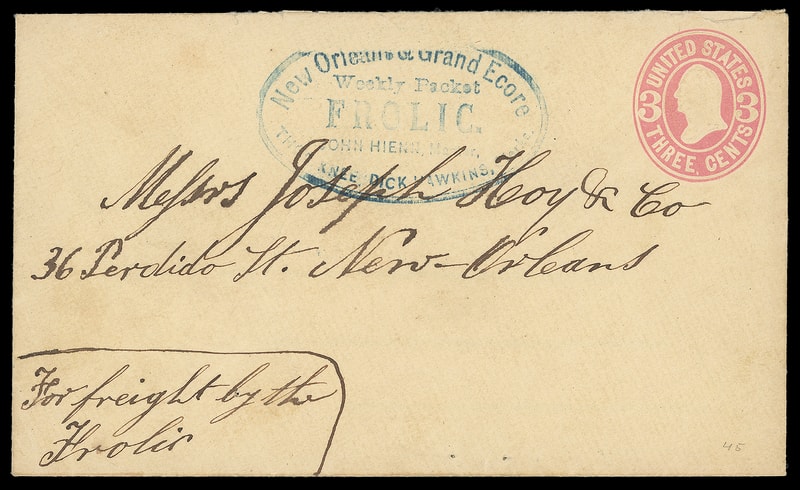 New Orleans & Grand Ecore
Weekly Packet
FROLIC
JOHN HIENN,
DICK HAWKINS,
UNITED STATES
3 3
THREE CENTS
Messrs Joseph Hoy & Co
36 Perdido St. New-Orleans
For freight by the
Frolic
45